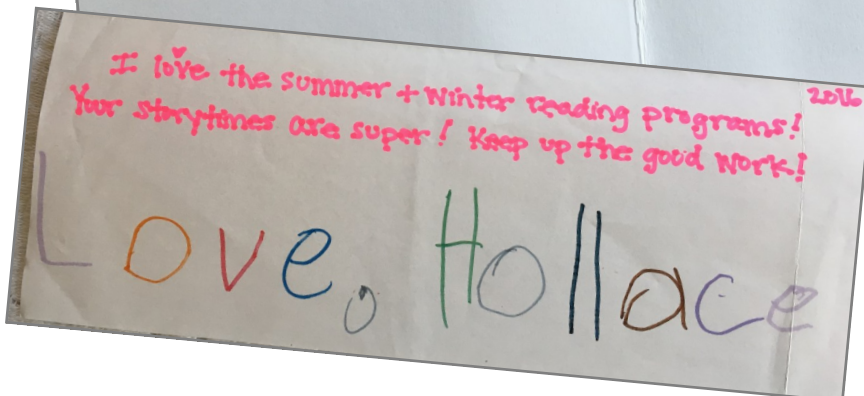 2016
I love the summer + winter reading programs!
Your storytimes are super! Keep up the good work!
Love, Hollace